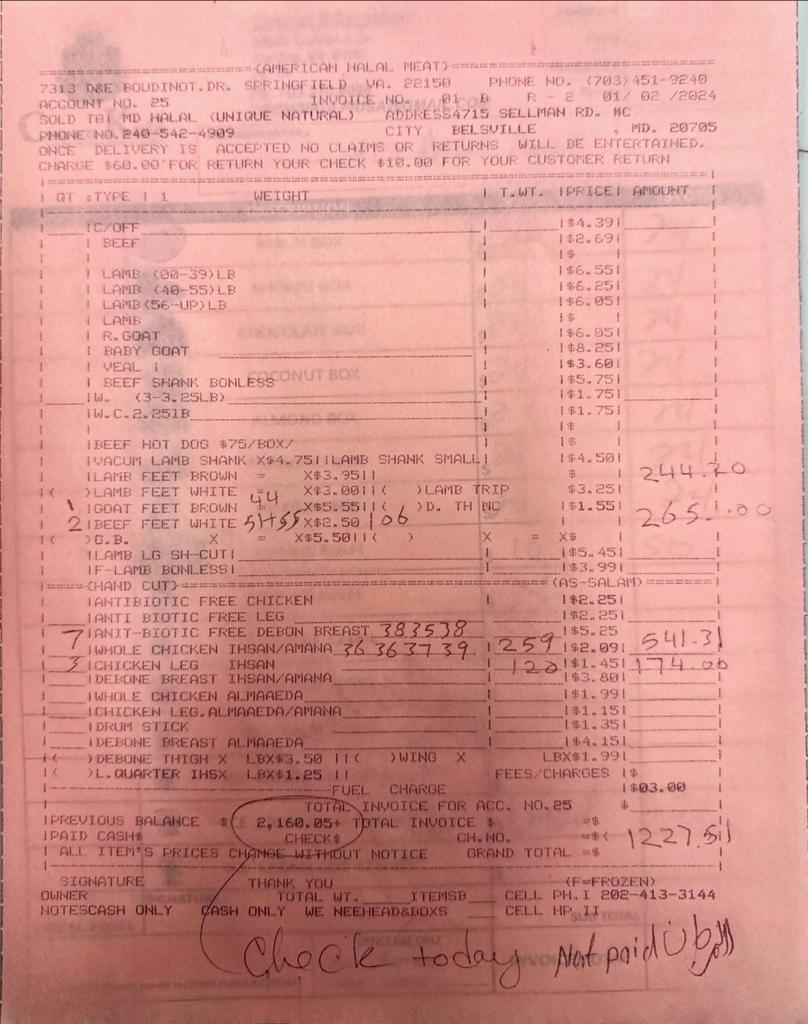 (AMERICAN HALAL MEAT)
7313 D&E BOUDINOT.DR. SPRINGFIELD VA. 22150 PHONE NO. (703)451-9240
ACCOUNT NO. 25 INVOICE NO. 01 D R - 2 01/ 02 /2024
SOLD TO: MD HALAL (UNIQUE NATURAL) ADDRESS4715 SELLMAN RD. MC
PHONE NO.240-542-4909 CITY BELSVILLE , MD. 20705
ONCE DELIVERY IS ACCEPTED NO CLAIMS OR RETURNS WILL BE ENTERTAINED.
CHARGE $60.00 FOR RETURN YOUR CHECK $10.00 FOR YOUR CUSTOMER RETURN
| QT :TYPE | 1 WEIGHT | T.WT. |PRICE| AMOUNT
|C/OFF |$4.39|
| BEEF |$2.69|
|$
| LAMB (00-39)LB |$6.55|
| LAMB (40-55)LB |$6.25|
| LAMB(56-UP)LB |$6.05|
| LAMB |$
| R.GOAT |$6.05|
| BABY GOAT |$8.25|
| VEAL | |$3.60|
| BEEF SHANK BONLESS |$5.75|
|W. (3-3.25LB) |$1.75|
|W.C.2.25lB |$1.75|
|$
|BEEF HOT DOG $75/BOX/ |$
|VACUM LAMB SHANK X$4.75||LAMB SHANK SMALL| |$4.50|
|LAMB FEET BROWN = X$3.95|| $ 244.20
|( )LAMB FEET WHITE = X$3.00||( )LAMB TRIP $3.25|
1 |GOAT FEET BROWN 44 X$5.55||( )D. TH MC |$1.55|
2 |BEEF FEET WHITE 51+55 X$2.50 106 265.00
|( )G.B. X = X$5.50||( ) X = X$
|LAMB LG SH-CUT| |$5.45|
|F-LAMB BONLESS| |$3.99|
(HAND CUT) (AS-SALAM)
|ANTIBIOTIC FREE CHICKEN |$2.25|
|ANTI BIOTIC FREE LEG |$2.25|
|ANIT-BIOTIC FREE DEBON BREAST 383538 |$5.25
7 |WHOLE CHICKEN IHSAN/AMANA 36 363739 |259 |$2.09| 541.31
3 |CHICKEN LEG IHSAN | 120 |$1.45| 174.00
|DEBONE BREAST IHSAN/AMANA |$3.80|
|WHOLE CHICKEN ALMAAEDA |$1.99|
|CHICKEN LEG.ALMAAEDA/AMANA |$1.15|
|DRUM STICK |$1.35|
|DEBONE BREAST ALMAAEDA |$4.15|
|( )DEBONE THIGH X LBX$3.50 ||( )WING X LBX$1.99|
|( )L.QUARTER IHSX LBX$1.25 || FEES/CHARGES |$
FUEL CHARGE |$03.00
TOTAL INVOICE FOR ACC. NO.25 $
|PREVIOUS BALANCE $ 2,160.05+ TOTAL INVOICE $ =$
|PAID CASH$ CHECK$ CH.NO. =$( 1227.51
| ALL ITEM'S PRICES CHANGE WITHOUT NOTICE GRAND TOTAL =$
SIGNATURE THANK YOU (F=FROZEN)
OWNER TOTAL WT. ITEMSB CELL PH.I 202-413-3144
NOTESCASH ONLY CASH ONLY WE NEEHEAD&BOXS CELL HP II
Check today Not paid